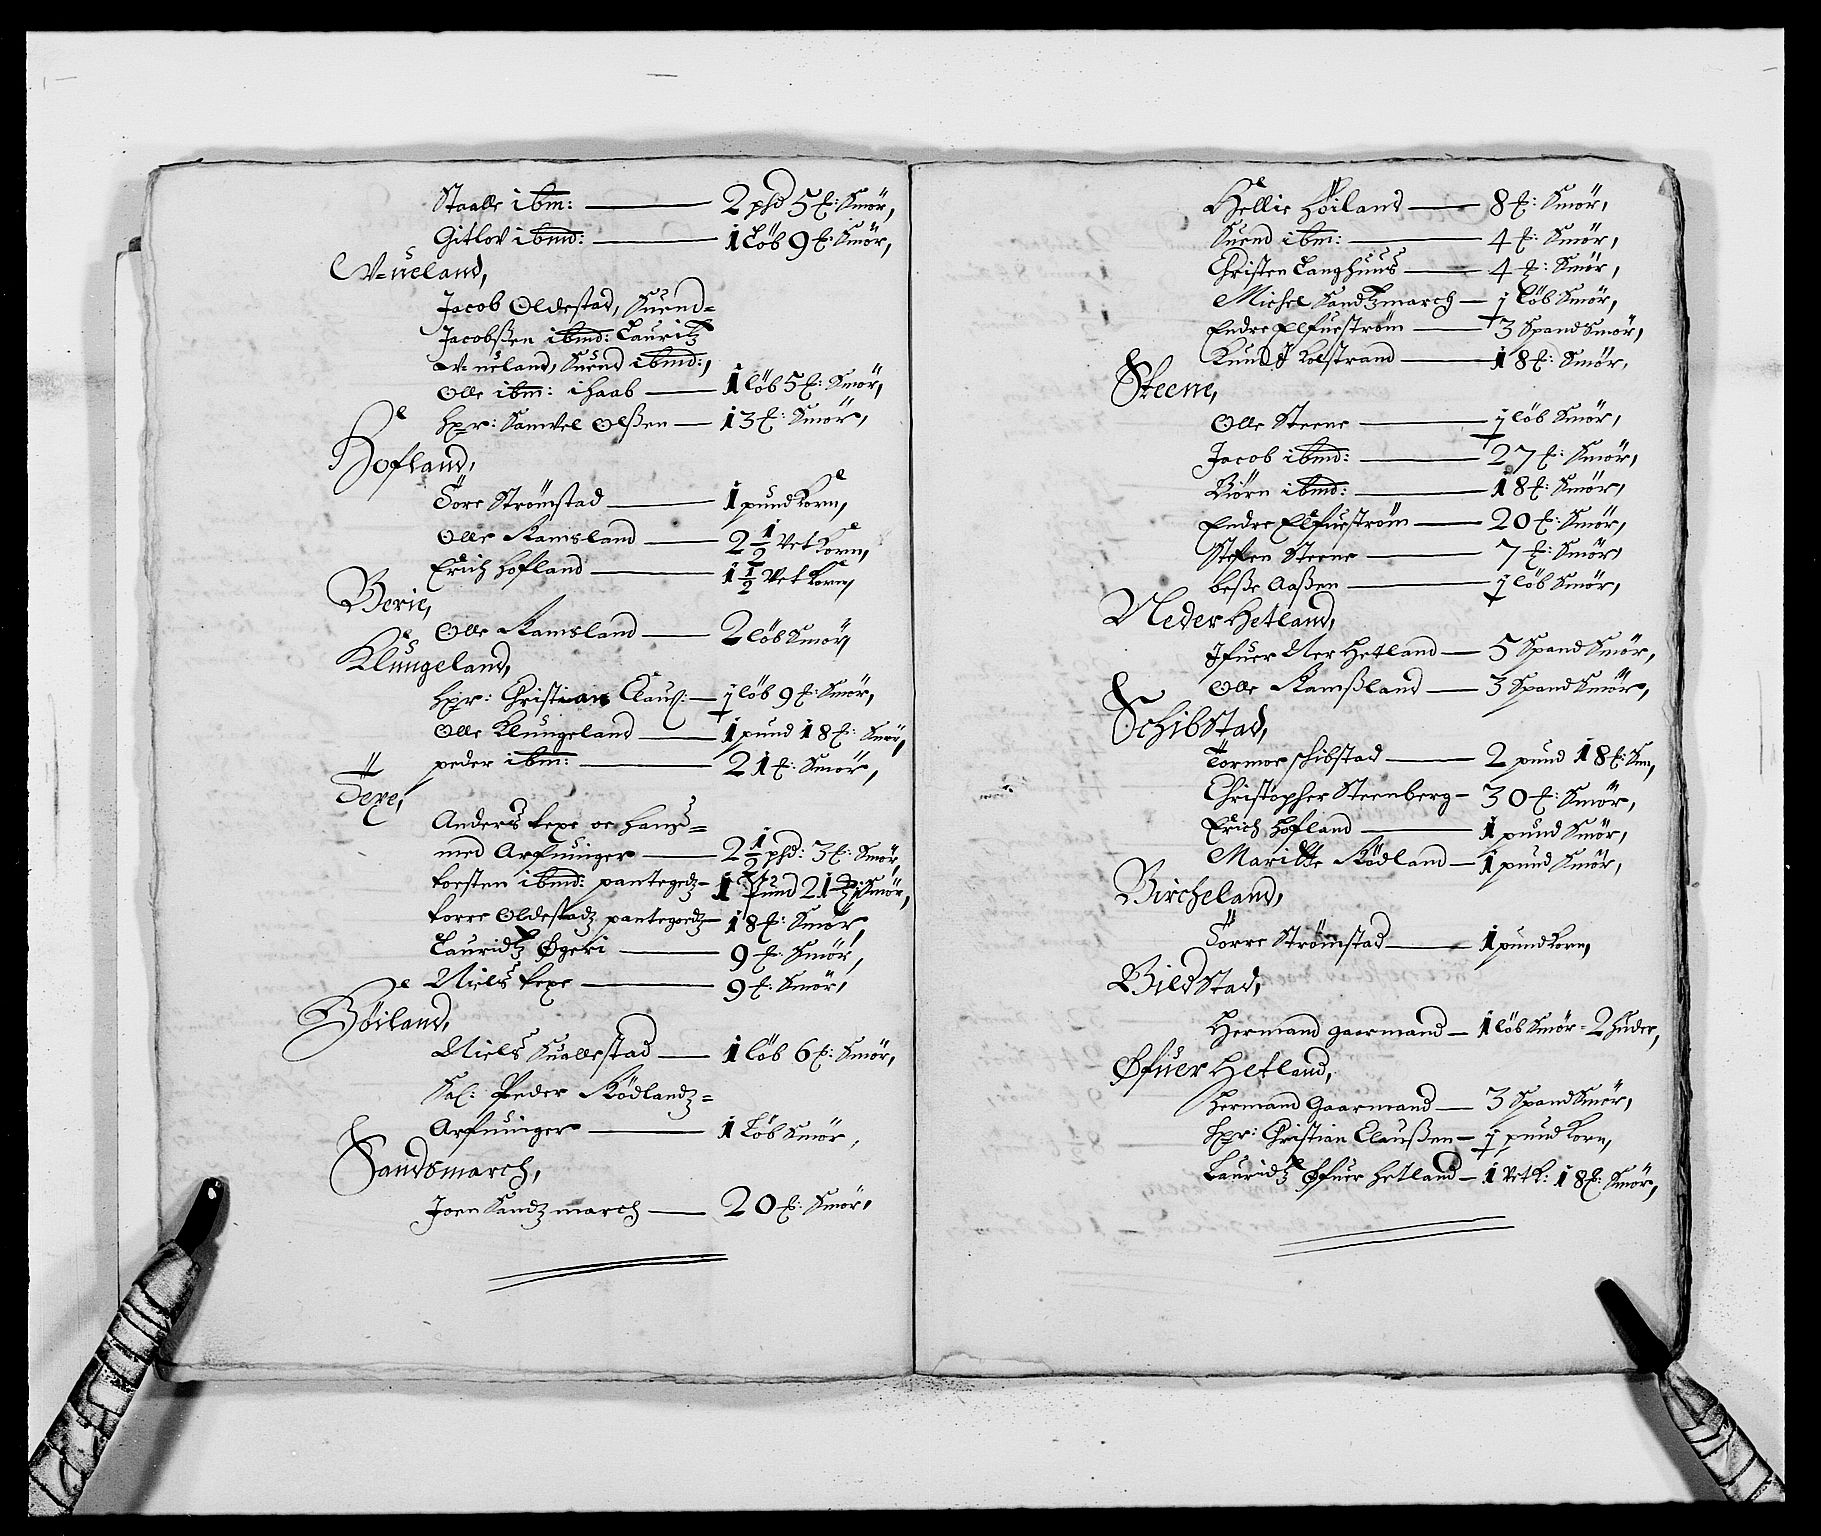 Staalle ibm: — 2 phd 5 ℔: Smör,
Gitlov ibmd: — 1 Löb 9 ℔: Smör,
V-ueland,
Jacob Oldestad, Suend=
Jacobßen ibmd: Lauritz
V-ueland, Suend ibmd:,
Olle ibm: ihaab — 1 löb 5 ℔: Smör,
Hpr: Samvel Olßen — 13 ℔: Smör,
Hofland,
Tore Strömstad — 1 pund Korn,
Olle Ramsland — 2 1/2 Vet Korn,
Erich Hofland — 1 1/2 Vet Korn,
Berie,
Olle Ramsland — 2 löb Smör,
Klungeland,
Hpr: Christian Clauß. — 1 löb 9 ℔: Smör,
Olle Klungeland — 1 pund 18 ℔: Smör,
peder ibm: — 21 ℔: Smör,
Texe,
Anders texe oc hans=
med Arfuinger — 2 1/2 phd: 3 ℔: Smör,
torsten ibmd: pantegodz — 1 pund 21 ℔: Smör,
torre Oldestadz pantegodz — 18 ℔: Smör,
Lauridtz Øgeri — 9 ℔: Smör,
Niels texe — 9 ℔: Smör,
Höiland,
Niels Suallestad — 1 löb 6 ℔: Smör,
Sal: Peder Rödlandz=
Arfuinger — 1 Löb Smör,
Sandsmarch,
Joen Sandz march — 20 ℔: Smör,
Hellie Höiland — 8 ℔: Smör,
Suend ibm: — 4 ℔: Smör,
Christen Langhuus — 4 ℔: Smör,
Michel Sandtzmarch — 1 löb Smör,
Endre Elfueström — 3 Spand Smör,
Knud Kolstrand — 18 ℔: Smör,
Steene,
Olle Steene — 1 löb Smör,
Jacob ibmd: — 27 ℔: Smör,
Biörn ibmd: — 18 ℔: Smör,
Endre Elfueström — 20 ℔: Smör,
Steffen Steene — 7 ℔: Smör,
beße Aaßen — 1 löb Smör,
Neder Hetland,
Ifuer Ner Hetland — 5 Spand Smör,
Olle Ramßland — 3 Spand Smör,
Schibstad,
Tormoe schibstad — 2 pund 18 ℔: Sm,
Christopher Steenberg — 30 ℔: Smör,
Erich Hofland — 1 pund Smör,
Maritte Rödland — 1 pund Smör,
Bircheland,
Torre Strömstad — 1 pund korn,
Bildstad,
Hermand gaarmand — 1 löb Smör - 2 Huder,
Øfuer Hetland,
Hermand Gaarmand — 3 Spand Smör,
Hpr: Christian Claußen — 1 pund korn,
Lauridtz Øfuer Hetland — 1 Vet k: 18 ℔: Smör,